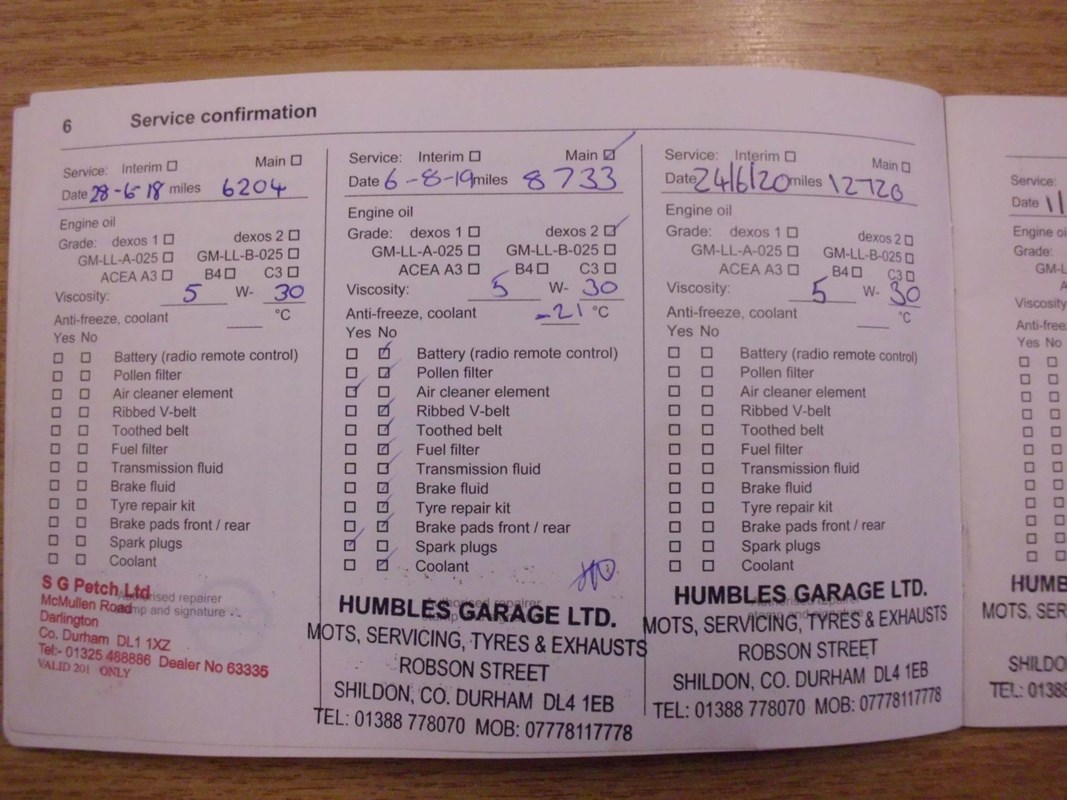 6 Service confirmation
Service: Interim ☐ Main ☐
Date 28-6-18 miles 6204
Engine oil
Grade: dexos 1 ☐ dexos 2 ☐
GM-LL-A-025 ☐ GM-LL-B-025 ☐
ACEA A3 ☐ B4 ☐ C3 ☐
Viscosity: 5 W- 30
Anti-freeze, coolant °C
Yes No
☐ ☐ Battery (radio remote control)
☐ ☐ Pollen filter
☐ ☐ Air cleaner element
☐ ☐ Ribbed V-belt
☐ ☐ Toothed belt
☐ ☐ Fuel filter
☐ ☐ Transmission fluid
☐ ☐ Brake fluid
☐ ☐ Tyre repair kit
☐ ☐ Brake pads front / rear
☐ ☐ Spark plugs
☐ ☐ Coolant
S G Petch Ltd
McMullen Road
Darlington
Co. Durham DL1 1XZ
Tel:- 01325 488886 Dealer No 63335
VALID 201 ONLY
Service: Interim ☐ Main ☑
Date 6-8-19 miles 8733
Engine oil
Grade: dexos 1 ☐ dexos 2 ☑
GM-LL-A-025 ☐ GM-LL-B-025 ☐
ACEA A3 ☐ B4 ☐ C3 ☐
Viscosity: 5 W- 30
Anti-freeze, coolant -21 °C
Yes No
☐ ☑ Battery (radio remote control)
☐ ☐ Pollen filter
☑ ☐ Air cleaner element
☐ ☑ Ribbed V-belt
☐ ☑ Toothed belt
☐ ☑ Fuel filter
☐ ☑ Transmission fluid
☐ ☑ Brake fluid
☐ ☑ Tyre repair kit
☐ ☑ Brake pads front / rear
☑ ☐ Spark plugs
☐ ☑ Coolant
HUMBLES GARAGE LTD.
MOTS, SERVICING, TYRES & EXHAUSTS
ROBSON STREET
SHILDON, CO. DURHAM DL4 1EB
TEL: 01388 778070 MOB: 07778117778
Service: Interim ☐ Main ☐
Date 24/6/20 miles 12720
Engine oil
Grade: dexos 1 ☐ dexos 2 ☐
GM-LL-A-025 ☐ GM-LL-B-025 ☐
ACEA A3 ☐ B4 ☐ C3 ☐
Viscosity: 5 W- 30
Anti-freeze, coolant °C
Yes No
☐ ☐ Battery (radio remote control)
☐ ☐ Pollen filter
☐ ☐ Air cleaner element
☐ ☐ Ribbed V-belt
☐ ☐ Toothed belt
☐ ☐ Fuel filter
☐ ☐ Transmission fluid
☐ ☐ Brake fluid
☐ ☐ Tyre repair kit
☐ ☐ Brake pads front / rear
☐ ☐ Spark plugs
☐ ☐ Coolant
HUMBLES GARAGE LTD.
MOTS, SERVICING, TYRES & EXHAUSTS
ROBSON STREET
SHILDON, CO. DURHAM DL4 1EB
TEL: 01388 778070 MOB: 07778117778
Service:
Date
Engine
Grade:
Viscosity
Yes No
MOTS,
TEL: